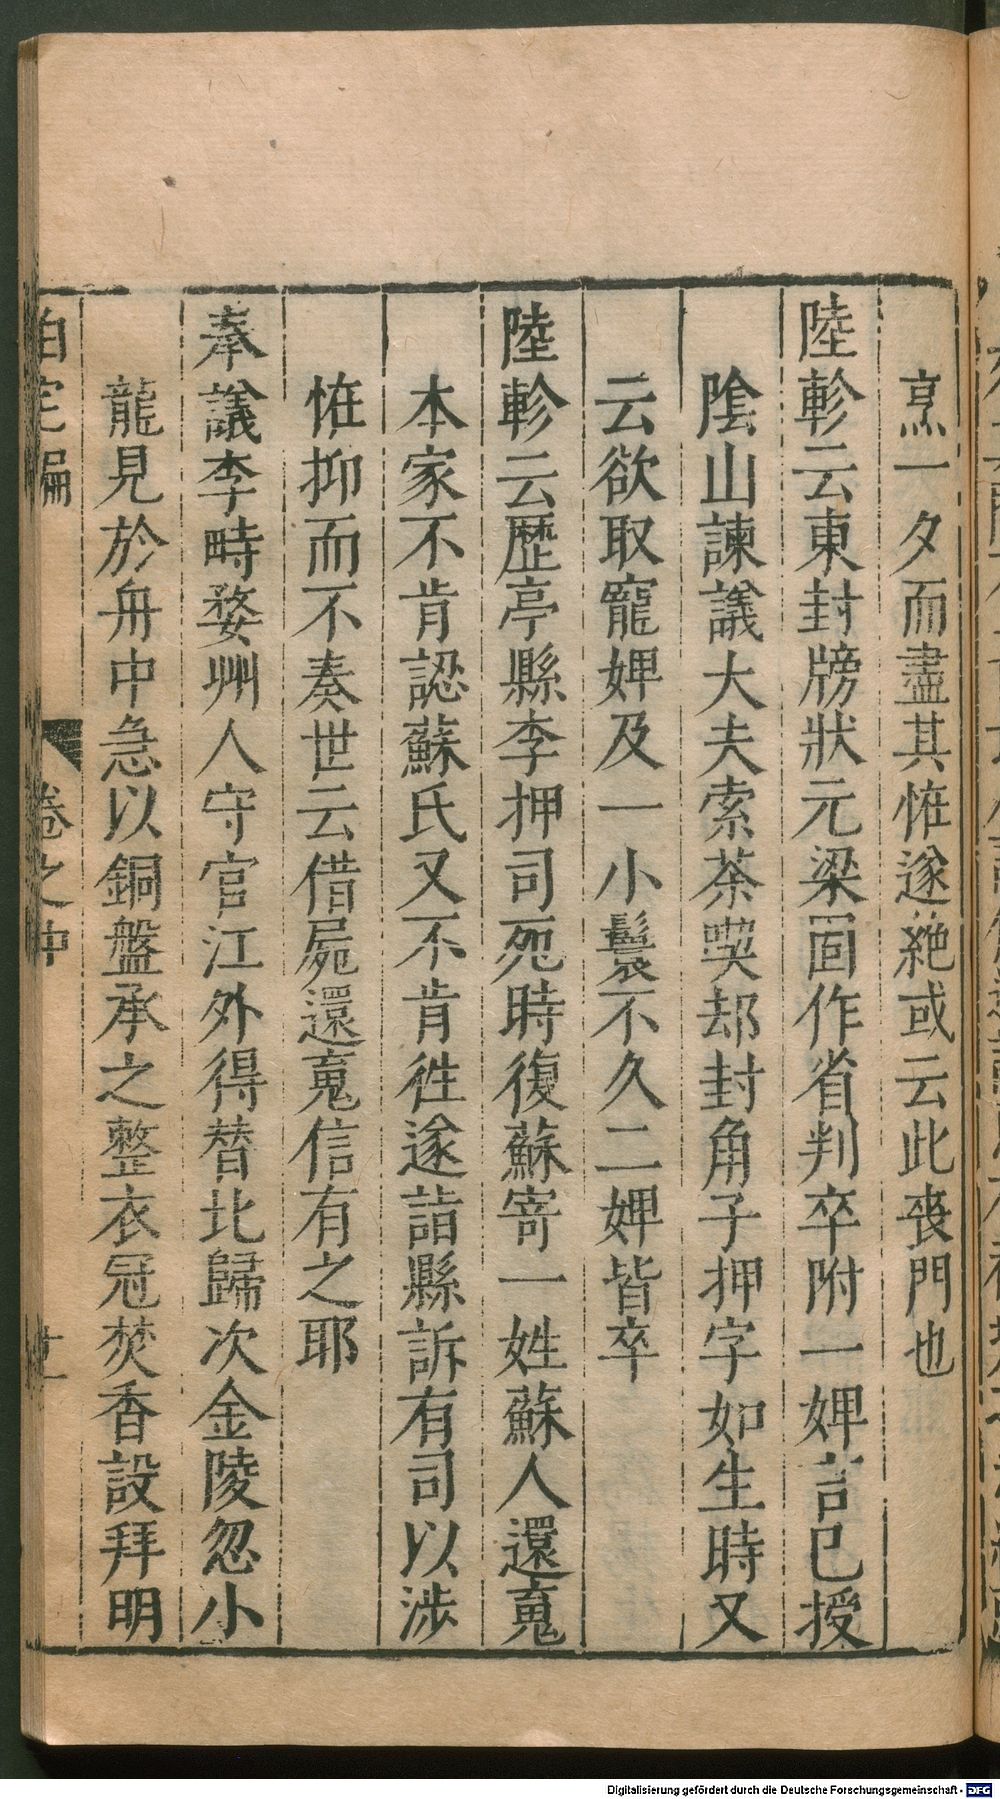 烹一夕而盡其恠遂絶或云此丧門也
陸軫云東封牓狀元梁固作省判卒附一婢言已授
隂山諫議大夫索茶喫却封角子押字如生時又
云欲取寵婢及一小鬟不久二婢皆卒
陸軫云歴亭縣李押司死時復蘇寄一姓蘇人還䰟
本家不肯認蘇氏又不肯徃遂詣縣訴有司以渉
恠抑而不奏世云借屍還䰟信有之耶
奉議李時婺州人守官江外得替北歸次金陵忽小
龍見於舟中急以銅盤承之整衣冠焚香設拜明
自宅編
卷之中
Digitalisierung gefördert durch die Deutsche Forschungsgemeinschaft - DFG